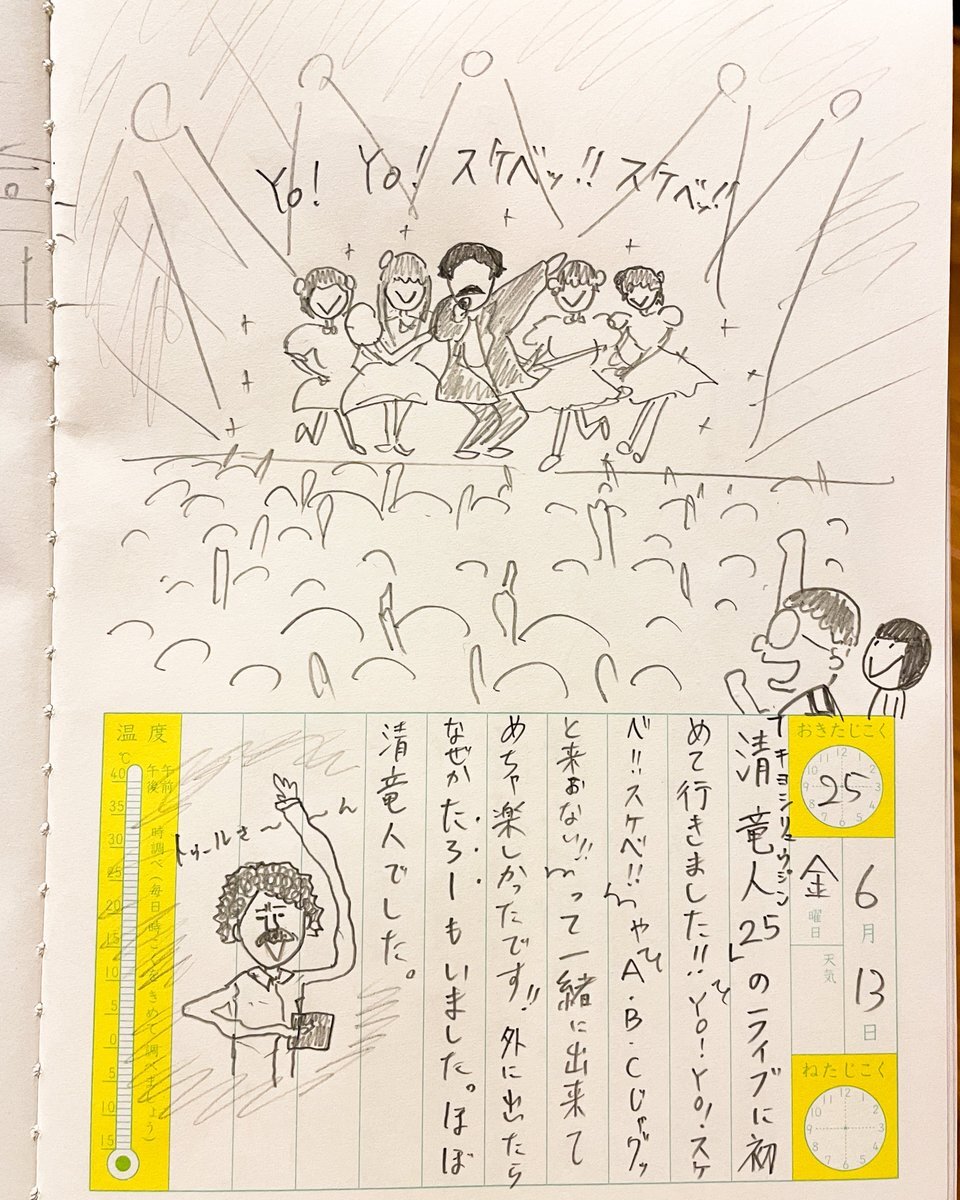 Yo! Yo! スケベッ!! スケベッ!!
おきたじこく
25
6月13日
金曜日
天気
ねたじこく
キヨシリュウジン
「清竜人25」のライブに初
めて行きました!!“Yo!Yo!スケ
ベ!!スケベ!!”や“A・B・Cじゃグッ
と来おない!!”って一緒に出来て
めちゃ楽しかったです!!外に出たら
なぜかたろーもいました。ほぼ
清竜人でした。
トゥールさ〜〜ん
温度
℃
午前
午後
時調べ(毎日時こくをきめて調べましょう)
40
35
30
25
20
15
10
5
0
5
10
15